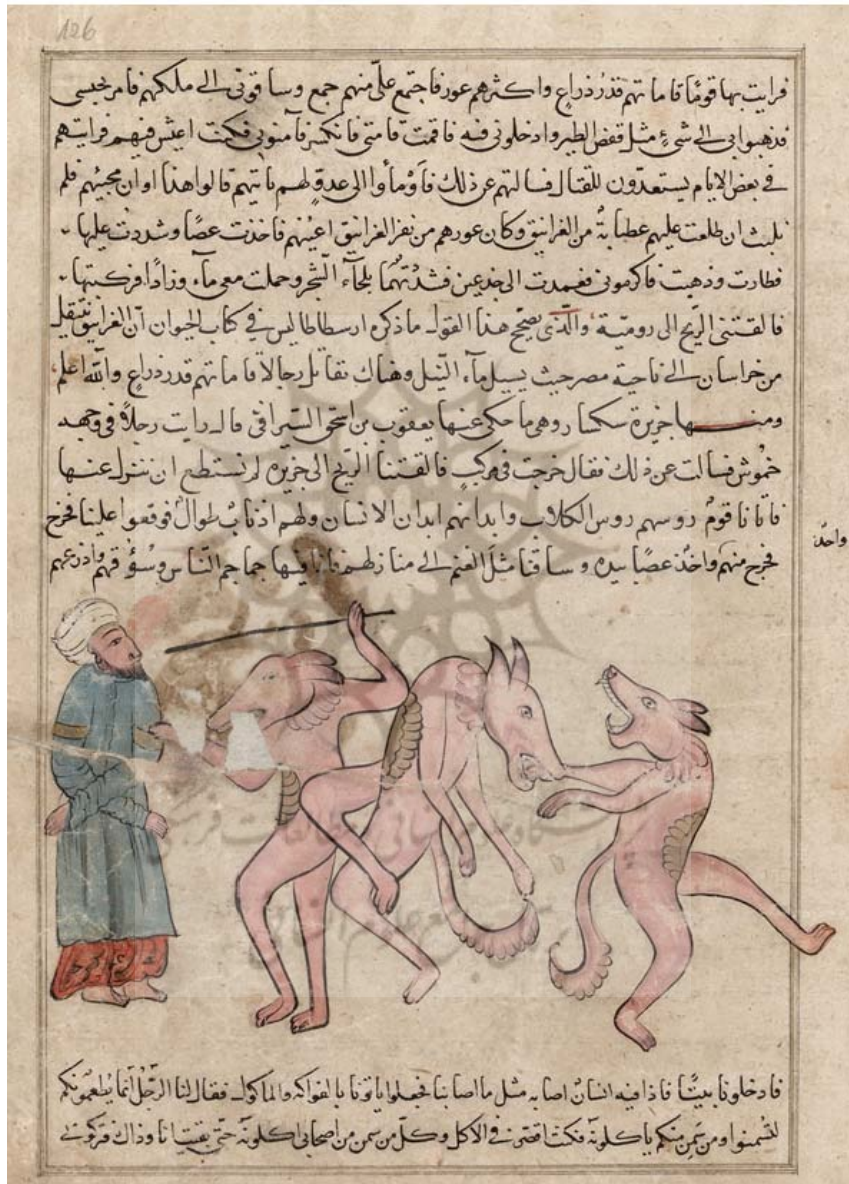 126
فرايت بها قومًا قاماتهم قدر ذراع واكثرهم عور فاجتمع علىّ منهم جمع وساقونى الى ملكهم فامر بحبسى
فذهبوا بى الى شئ مثل قفص الطير وادخلونى فيه فاقمت قامتى فانكسر فآمنونى فكنت اعيش فيهم فرايتهم
فى بعض الايام يستعدّون للقتال فسالتهم عن ذلك فاومأوا الى عدوّ لهم ياتيهم قالوا هذا اوان مجيئهم فلم
نلبث ان طلعت عليهم عصابة من الغرانيق وكان عورهم من نقر الغرانيق اعينهم فاخذت عصًا وشددت عليها
فطارت وذهبت فاكرمونى فعمدت الى جذعين فشدتهما بلحآء الشجر وحملت معى مآء وزادًا فركبتها
فالقتنى الريح الى رومية والّذى يصحح هذا القول ما ذكره ارسطاطاليس فى كتاب الحيوان انّ الغرانيق تنتقل
من خراسان الى ناحية مصر حيث يسيل مآء النّيل وهناك تقاتل رجالا قاماتهم قدر ذراع والله اعلم
ومنها جزيرة سكسار وهى ما حكى عنها يعقوب بن اسحق السّيرافى قال رايت رجلاً فى وجهه
خموش فسالت عن ذلك فقال خرجت فى مركب فالقتنا الريح الى جزيرة لم نستطع ان ننزل عنها
فاتانا قوم روسهم روس الكلاب وابدانهم ابدان الانسان ولهم اذناب طوال فوقعوا علينا فخرج
واحد
فخرج منهم واخذ عصًا بيده وساقنا مثل الغنم الى منازلهم فاذا فيها جماجم النّاس وسؤقهم واذرعهم
فادخلونا بيتًا فاذا فيه انسان اصابه مثل ما اصابنا فجعلوا ياتونا بالفواكه والماكول فقال لنا الرّجل انّما يطعمونكم
لتسمنوا ومن سمن منكم ياكلونه فكنت اقصّر فى الاكل وكلّ من سمن من اصحابى اكلونه حتى بقيت انا وذاك فتركونى